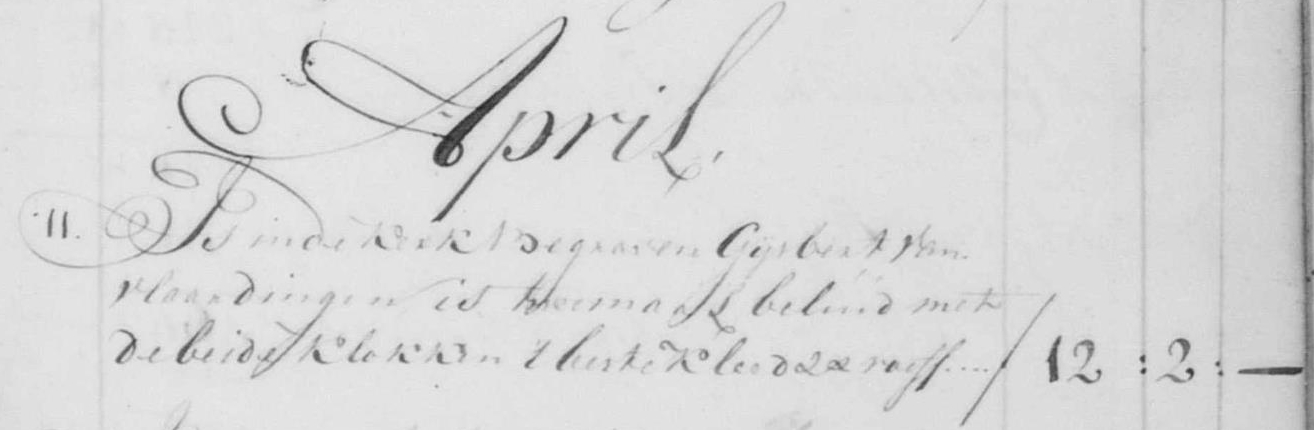 April.
11. Is inde kerk Begraven Gijsbert van
vlaardingen is tweemaal beluid met
de beide klokken 't beste kleed 2 x roeff .... / 12 : 2 : —